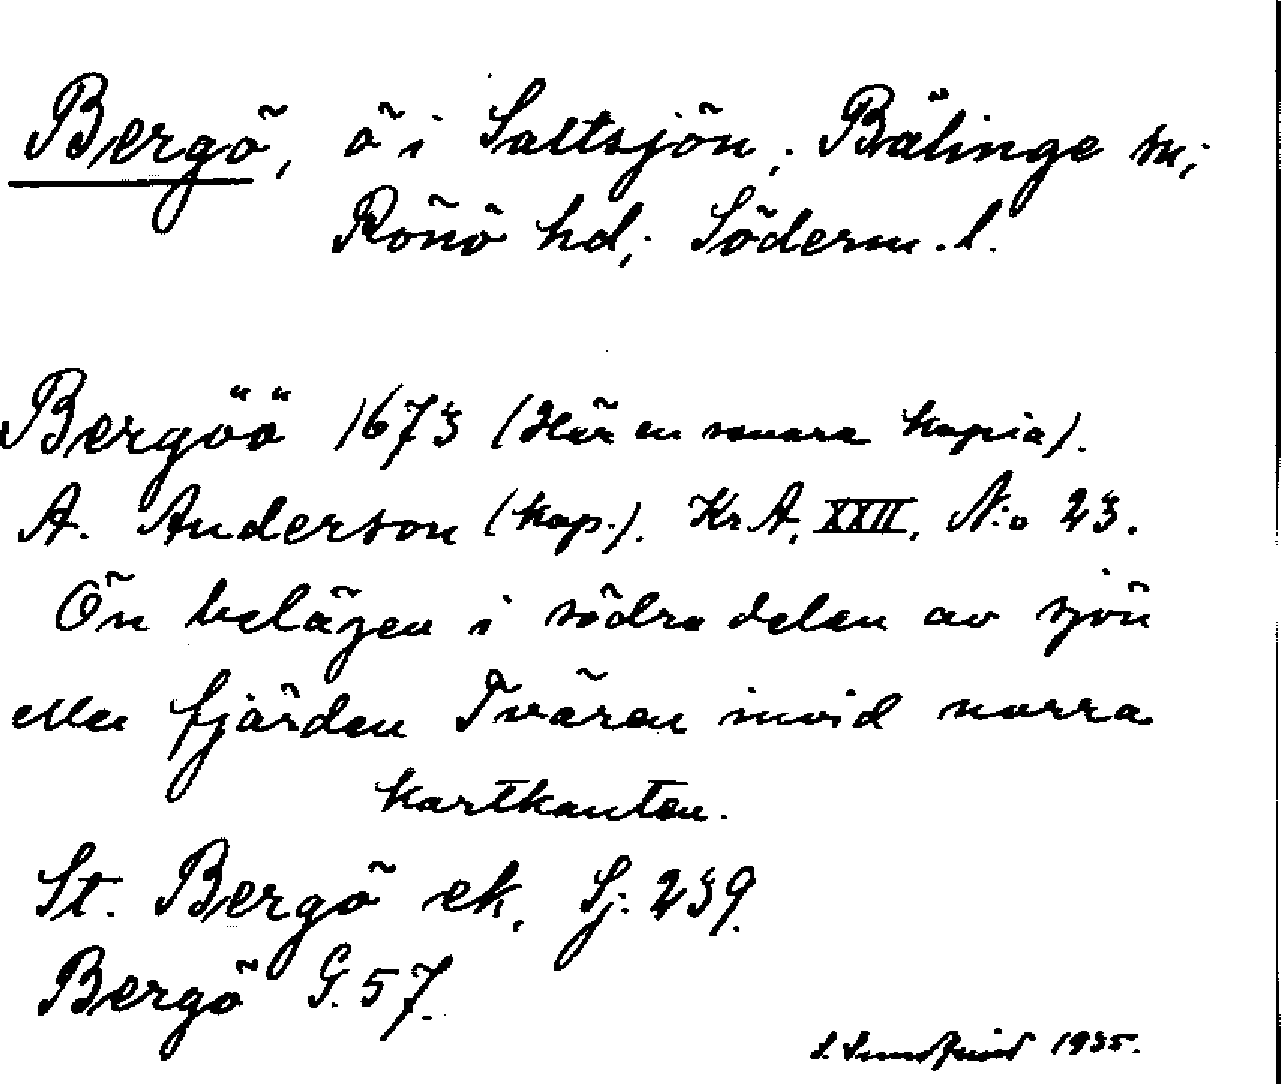 Bergö, ö i Saltsjön; Bälinge sn;
Rönö hd; Söderm. l.
Bergöö 1673 (Här en senare kopia).
A. Anderson (kop.). Kr.A. XXII, N:o 23.
Ön belägen i södra delen av sjön
eller fjärden Tvären invid norra
kartkanten.
St. Bergö ek. Sj. 239.
Bergö G. 57.
1935.